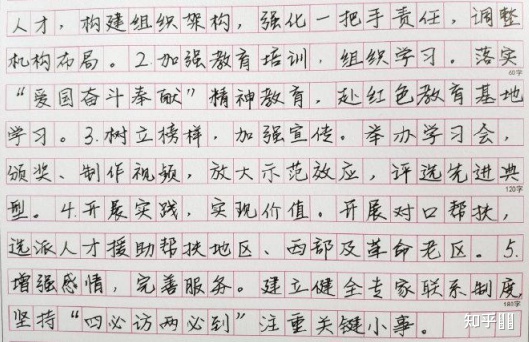 人才，构建组织架构，强化一把手责任，调整
机构布局。2.加强教育培训，组织学习。落实
60字
“爱国奋斗奉献”精神教育，赴红色教育基地
学习。3.树立榜样，加强宣传。举办学习会，
颁奖、制作视频，放大示范效应，评选先进典
120字
型。4.开展实践，实现价值。开展对口帮扶，
选派人才援助帮扶地区、西部及革命老区。5.
增强感情，完善服务。建立健全专家联系制度，
180字
坚持“四必访两必到”注重关键小事。
知乎